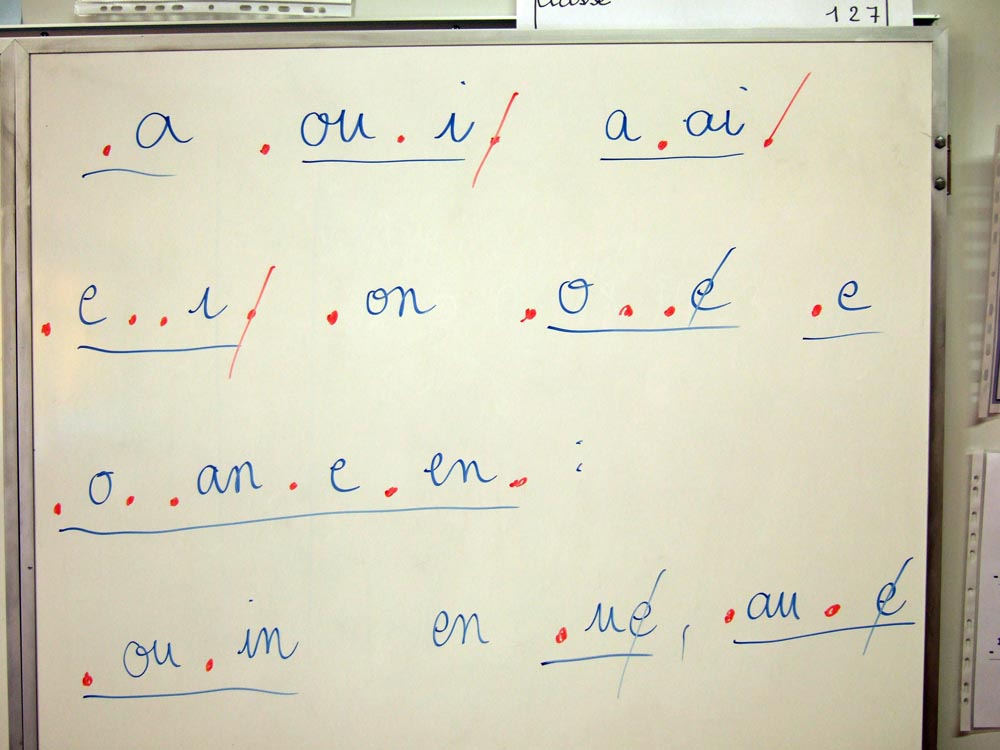 classe
127
.a .ou.i. a.ai.
.e..i. .on .o..e .e
.o..an.e.en. :
.ou.in en .ue, .au.e